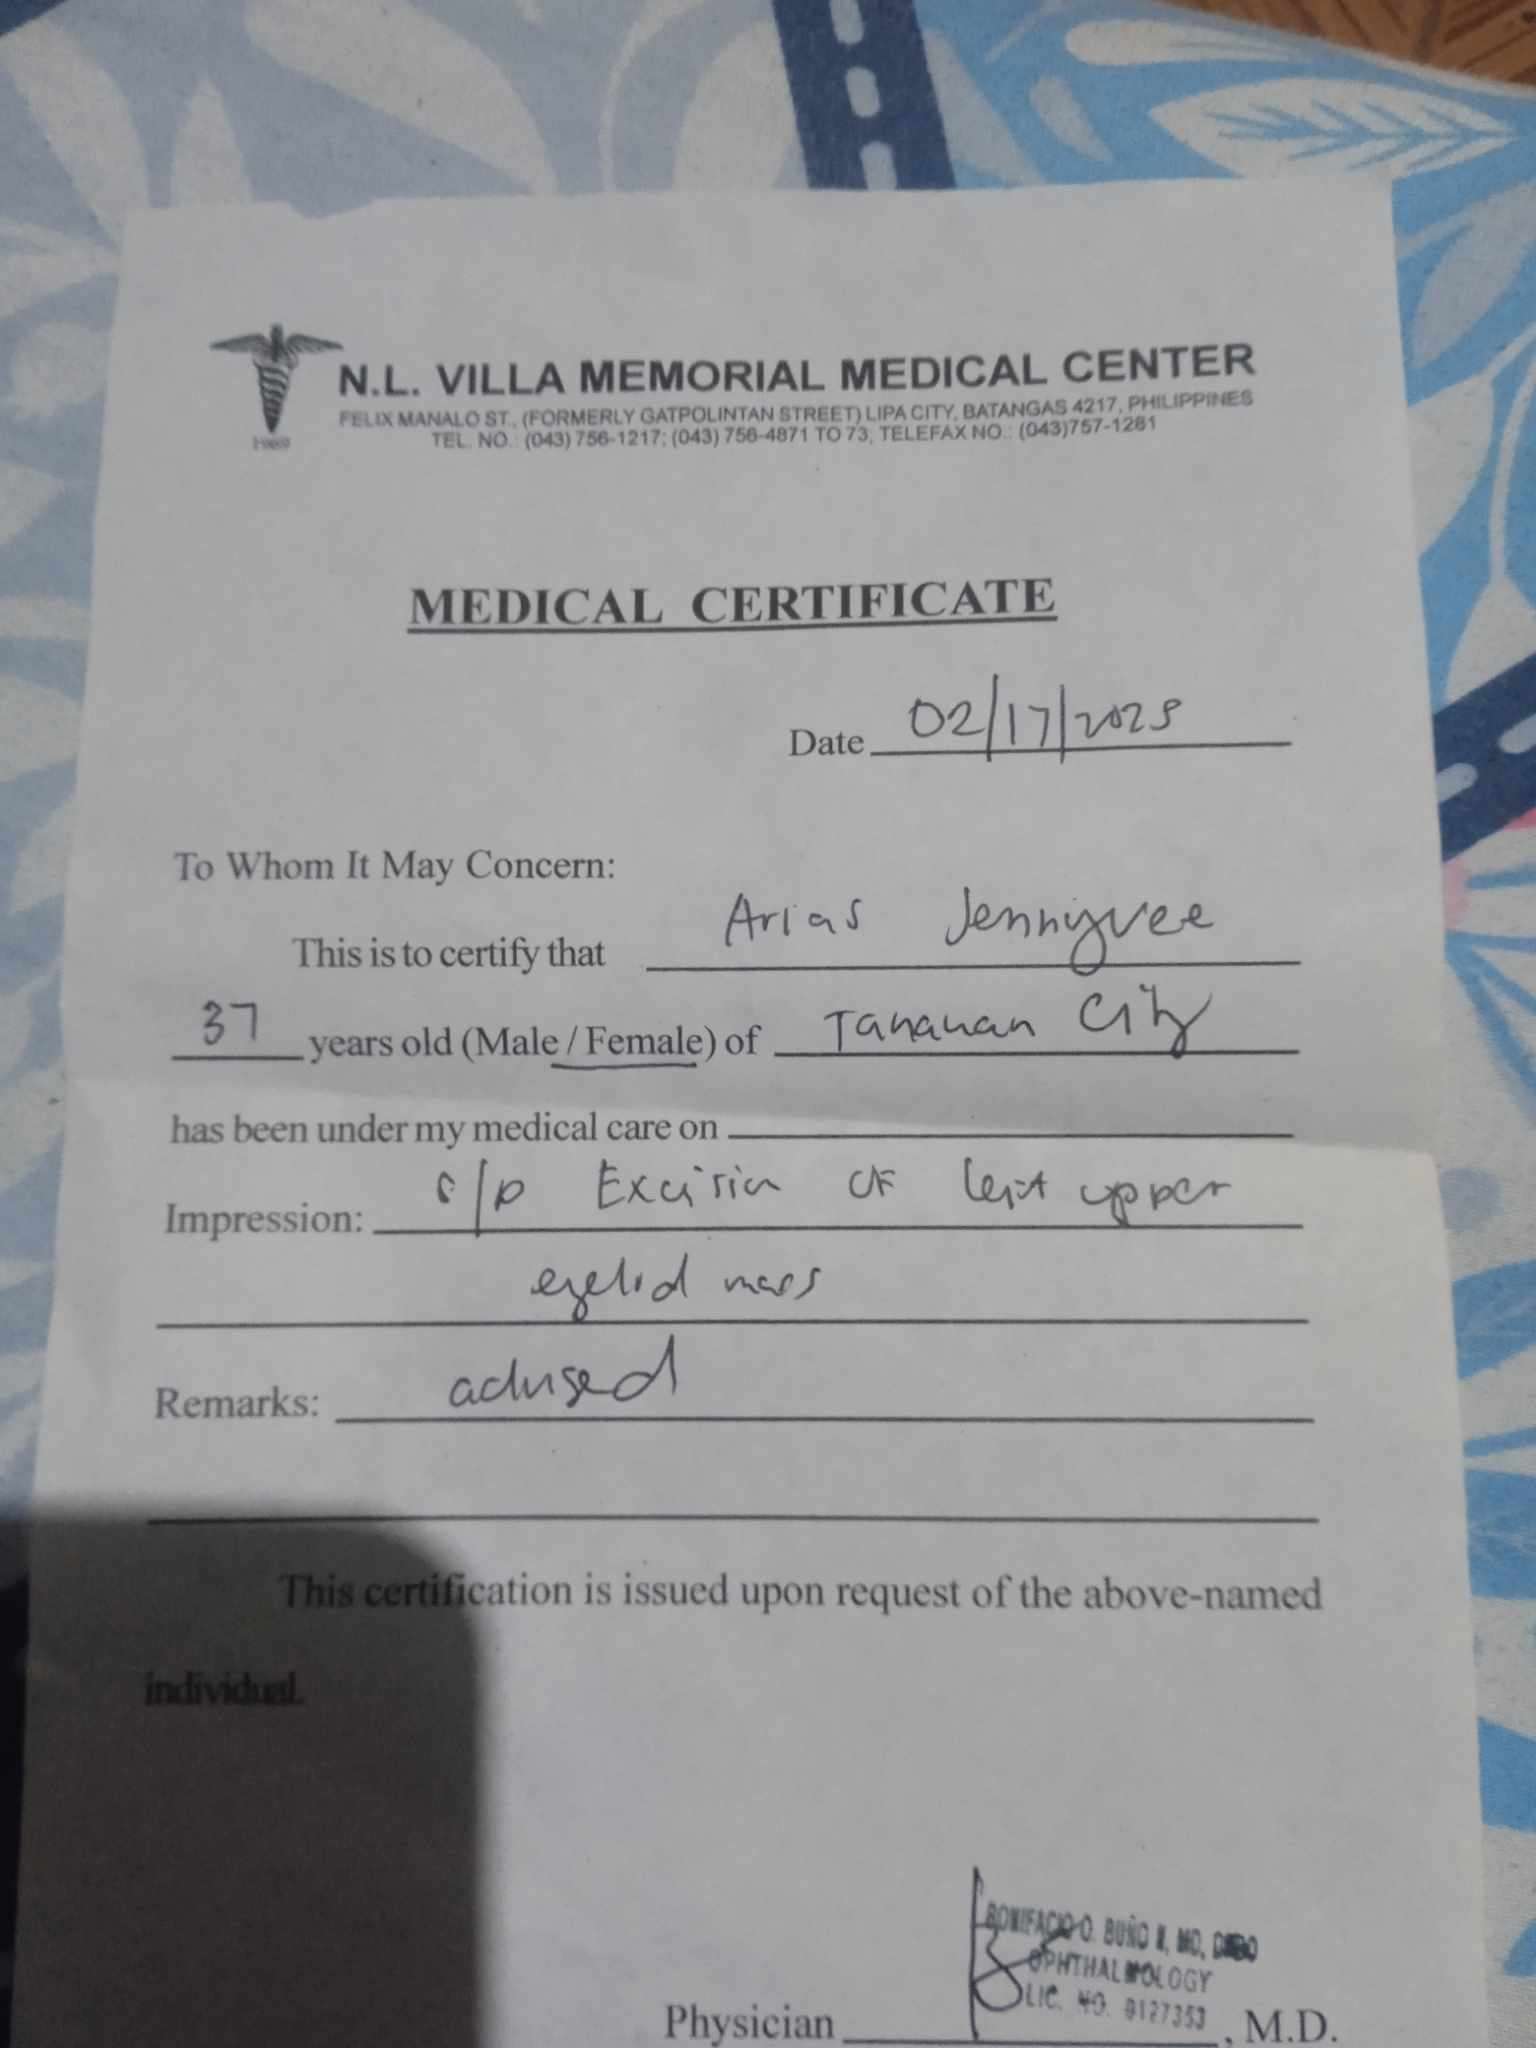 N.L. VILLA MEMORIAL MEDICAL CENTER
FELIX MANALO ST., (FORMERLY GATPOLINTAN STREET) LIPA CITY, BATANGAS 4217, PHILIPPINES
TEL. NO.: (043) 756-1217; (043) 756-4871 TO 73; TELEFAX NO.: (043)757-1281
MEDICAL CERTIFICATE
Date 02/17/2025
To Whom It May Concern:
This is to certify that Arias Jennyvee
37 years old (Male / Female) of Tanauan City
has been under my medical care on
Impression: s/p Excision of left upper
eyelid mass
Remarks: advised
This certification is issued upon request of the above-named
individual.
BONIFACIO O. BUÑO II, MD, DPBO
OPHTHALMOLOGY
LIC. NO. 0127353
Physician , M.D.